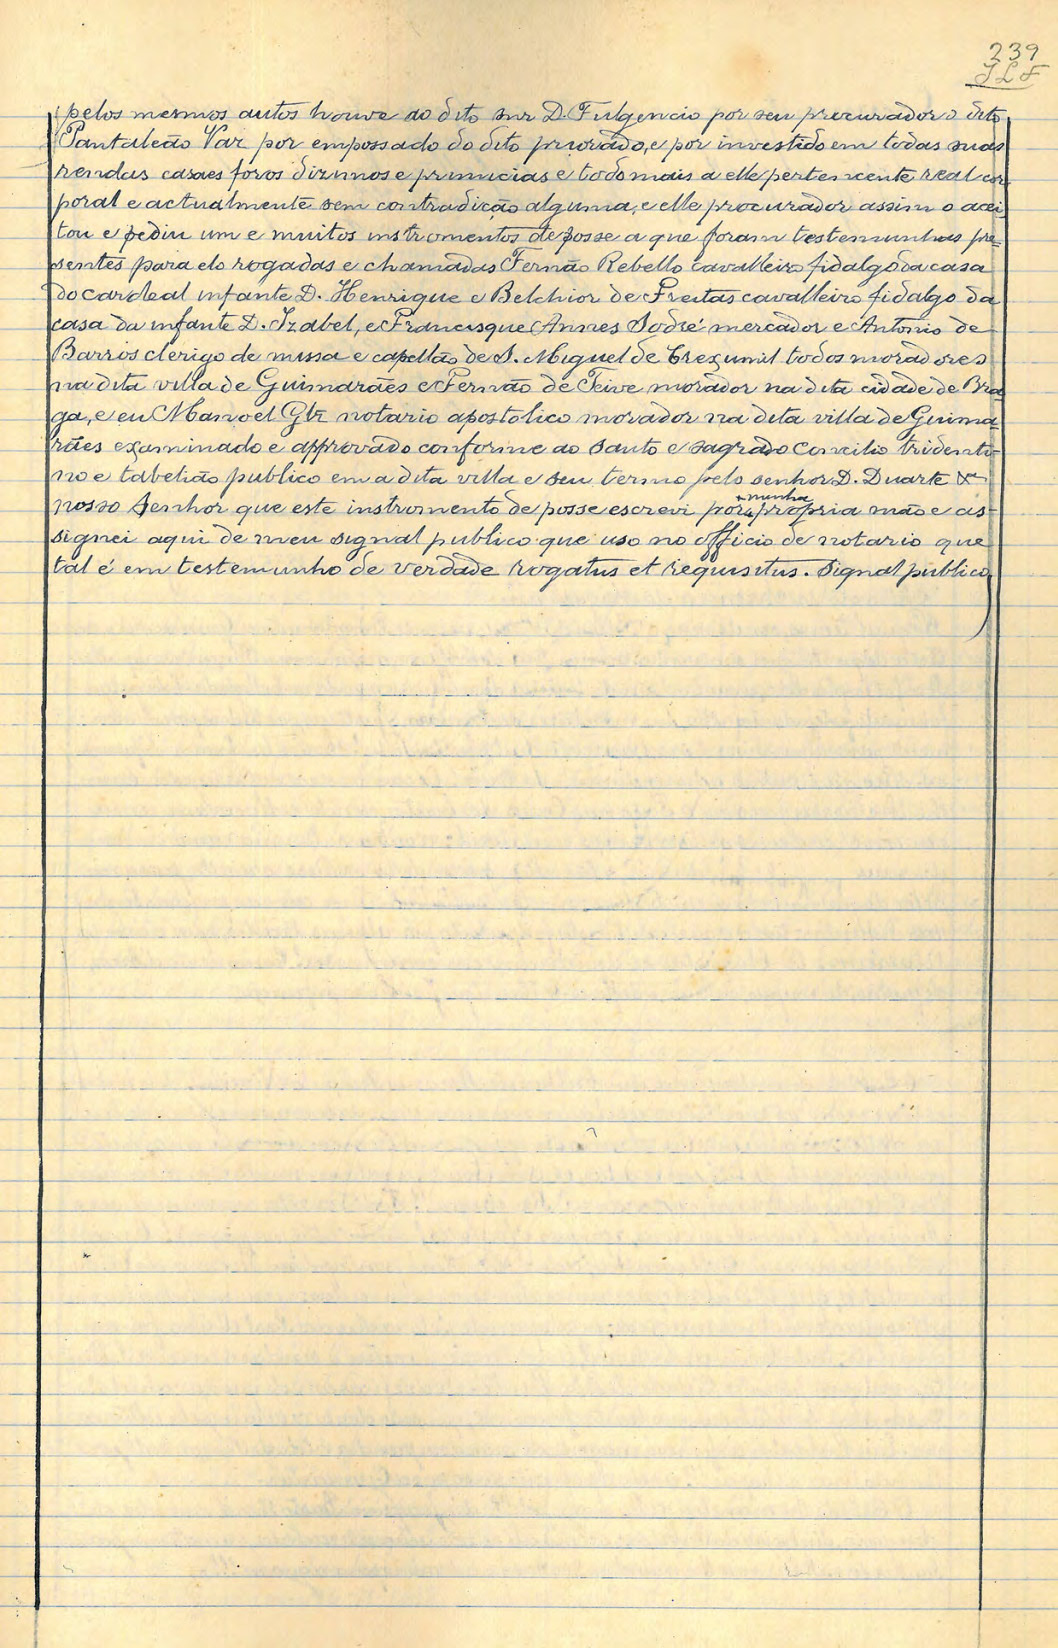 239
JLF
pelos mesmos autos houve ao dito snr D. Fulgencio por seu procurador o dito
Pantaleão Vaz por empossado do dito priorado, e por investido em todas suas
rendas casaes foros dizimos e primicias e todo mais a elle pertencente real cor-
poral e actualmente sem contradicão alguma, e elle procurador assim o acei
tou e pediu um e muitos instromentos de posse a que foram testemunhas pre-
sentes para elo rogadas e chamadas Fernão Rebello cavalleiro fidalgo da casa
do cardeal infante D. Henrique e Belchior de Freitas cavalleiro fidalgo da
casa da infante D. Izabel, e Francisque Annes Sodré mercador e Antonio de
Barros clerigo de missa e capellão de S. Miguel de Creixumil todos moradores
na dita villa de Guimarães e Fernão de Teive morador na dita cidade de Bra
ga, e eu Manoel Glz notario apostolico morador na dita villa de Guima-
rães examinado e approvado conforme ao santo e sagrado Concilio tridenti-
no e tabelião publico em a dita villa e seu termo pelo senhor D. Duarte &
nosso Senhor que este instromento de posse escrevi por minha propria mão e as-
signei aqui de meu signal publico que uso no officio de notario que
tal é em testemunho de verdade rogatus et requisitus. Signal publico